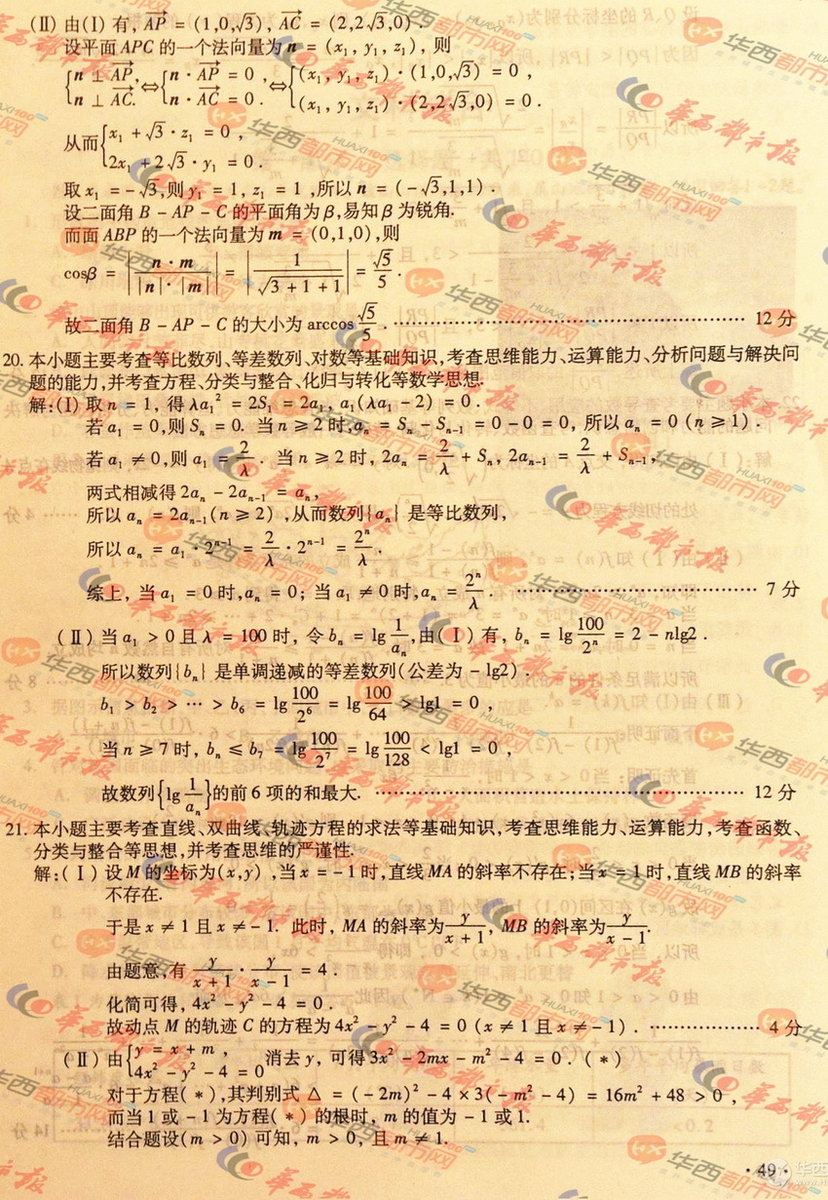 (Ⅱ) 由(Ⅰ) 有, AP = (1,0,√3), AC = (2,2√3,0).
设平面 APC 的一个法向量为 n = (x₁, y₁, z₁), 则
{n ⊥ AP, n ⊥ AC. ⇔ {n · AP = 0, n · AC = 0. ⇔ {(x₁, y₁, z₁) · (1,0,√3) = 0, (x₁, y₁, z₁) · (2,2√3,0) = 0.
从而{x₁ + √3 · z₁ = 0, 2x₁ + 2√3 · y₁ = 0.
取 x₁ = -√3,则 y₁ = 1, z₁ = 1,所以 n = (-√3,1,1).
设二面角 B - AP - C 的平面角为β,易知β为锐角.
而面 ABP 的一个法向量为 m = (0,1,0),则
cosβ = |n · m / |n| · |m|| = |1/√(3 + 1 + 1)| = √5/5.
故二面角 B - AP - C 的大小为 arccos √5/5. …… 12 分
20. 本小题主要考查等比数列、等差数列、对数等基础知识,考查思维能力、运算能力、分析问题与解决问
题的能力,并考查方程、分类与整合、化归与转化等数学思想.
解:(Ⅰ) 取 n = 1, 得 λa₁² = 2S₁ = 2a₁, a₁(λa₁ - 2) = 0.
若 a₁ = 0,则 Sₙ = 0. 当 n ≥ 2 时,aₙ = Sₙ - Sₙ₋₁ = 0 - 0 = 0, 所以 aₙ = 0 (n ≥ 1).
若 a₁ ≠ 0,则 a₁ = 2/λ. 当 n ≥ 2 时, 2aₙ = 2/λ + Sₙ, 2aₙ₋₁ = 2/λ + Sₙ₋₁,
两式相减得 2aₙ - 2aₙ₋₁ = aₙ,
所以 aₙ = 2aₙ₋₁(n ≥ 2),从而数列{aₙ} 是等比数列,
所以 aₙ = a₁ · 2ⁿ⁻¹ = 2/λ · 2ⁿ⁻¹ = 2ⁿ/λ.
综上, 当 a₁ = 0 时,aₙ = 0; 当 a₁ ≠ 0 时,aₙ = 2ⁿ/λ. …… 7 分
(Ⅱ) 当 a₁ > 0 且 λ = 100 时, 令 bₙ = lg 1/aₙ,由(Ⅰ) 有, bₙ = lg 100/2ⁿ = 2 - nlg2.
所以数列{bₙ} 是单调递减的等差数列(公差为 - lg2).
b₁ > b₂ > … > b₆ = lg 100/2⁶ = lg 100/64 > lg1 = 0,
当 n ≥ 7 时, bₙ ≤ b₇ = lg 100/2⁷ = lg 100/128 < lg1 = 0,
故数列{lg 1/aₙ}的前 6 项的和最大. …… 12 分
21. 本小题主要考查直线、双曲线、轨迹方程的求法等基础知识,考查思维能力、运算能力,考查函数、
分类与整合等思想,并考查思维的严谨性.
解:(Ⅰ) 设 M 的坐标为(x,y),当 x = -1 时,直线 MA 的斜率不存在;当 x = 1 时,直线 MB 的斜率
不存在.
于是 x ≠ 1 且 x ≠ -1. 此时, MA 的斜率为 y/(x + 1), MB 的斜率为 y/(x - 1).
由题意,有 y/(x + 1) · y/(x - 1) = 4.
化简可得, 4x² - y² - 4 = 0.
故动点 M 的轨迹 C 的方程为 4x² - y² - 4 = 0 (x ≠ 1 且 x ≠ -1). …… 4 分
(Ⅱ) 由{y = x + m, 4x² - y² - 4 = 0 消去 y, 可得 3x² - 2mx - m² - 4 = 0. (*)
对于方程(*),其判别式 △ = (-2m)² - 4 × 3(-m² - 4) = 16m² + 48 > 0,
而当 1 或 -1 为方程(*) 的根时, m 的值为 -1 或 1.
结合题设(m > 0) 可知, m > 0, 且 m ≠ 1.
· 49 ·
华西都市报
华西都市网
HUAXI100.COM